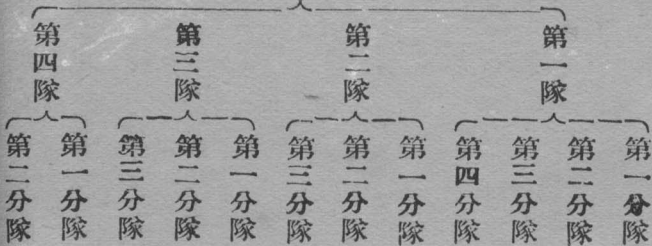 第一隊
第一分隊
第二分隊
第三分隊
第四分隊
第二隊
第一分隊
第二分隊
第三分隊
第三隊
第一分隊
第二分隊
第三分隊
第四隊
第一分隊
第二分隊